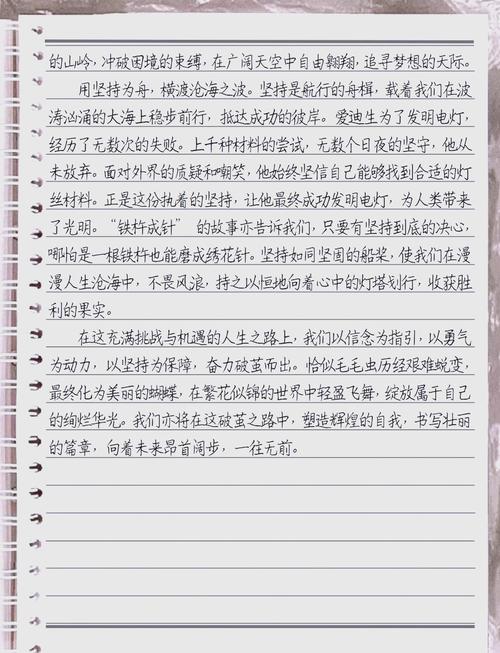 的山岭，冲破困境的束缚，在广阔天空中自由翱翔，追寻梦想的天际。
用坚持为舟，横渡沧海之波。坚持是航行的舟楫，载着我们在波
涛汹涌的大海上稳步前行，抵达成功的彼岸。爱迪生为了发明电灯，
经历了无数次的失败。上千种材料的尝试，无数个日夜的坚守，他从
未放弃。面对外界的质疑和嘲笑，他始终坚信自己能够找到合适的灯
丝材料。正是这份执着的坚持，让他最终成功发明电灯，为人类带来
了光明。“铁杵成针” 的故事亦告诉我们，只要有坚持到底的决心，
哪怕是一根铁杵也能磨成绣花针。坚持如同坚固的船桨，使我们在漫
漫人生沧海中，不畏风浪，持之以恒地向着心中的灯塔划行，收获胜
利的果实。
在这充满挑战与机遇的人生之路上，我们以信念为指引，以勇气
为动力，以坚持为保障，奋力破茧而出。恰似毛毛虫历经艰难蜕变，
最终化为美丽的蝴蝶，在繁花似锦的世界中轻盈飞舞，绽放属于自己
的绚烂华光。我们亦将在这破茧之路中，塑造辉煌的自我，书写壮丽
的篇章，向着未来昂首阔步，一往无前。